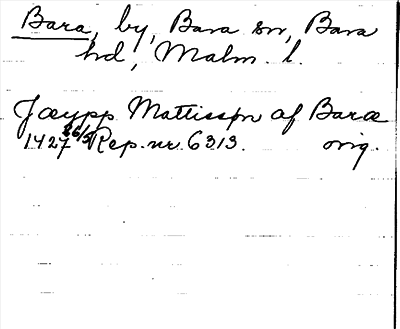 Bara, by, Bara sn, Bara
hd, Malm. l.
Jæypp Mattisson af Baræ
1427 26/3 Rep. nr. 6313. orig.